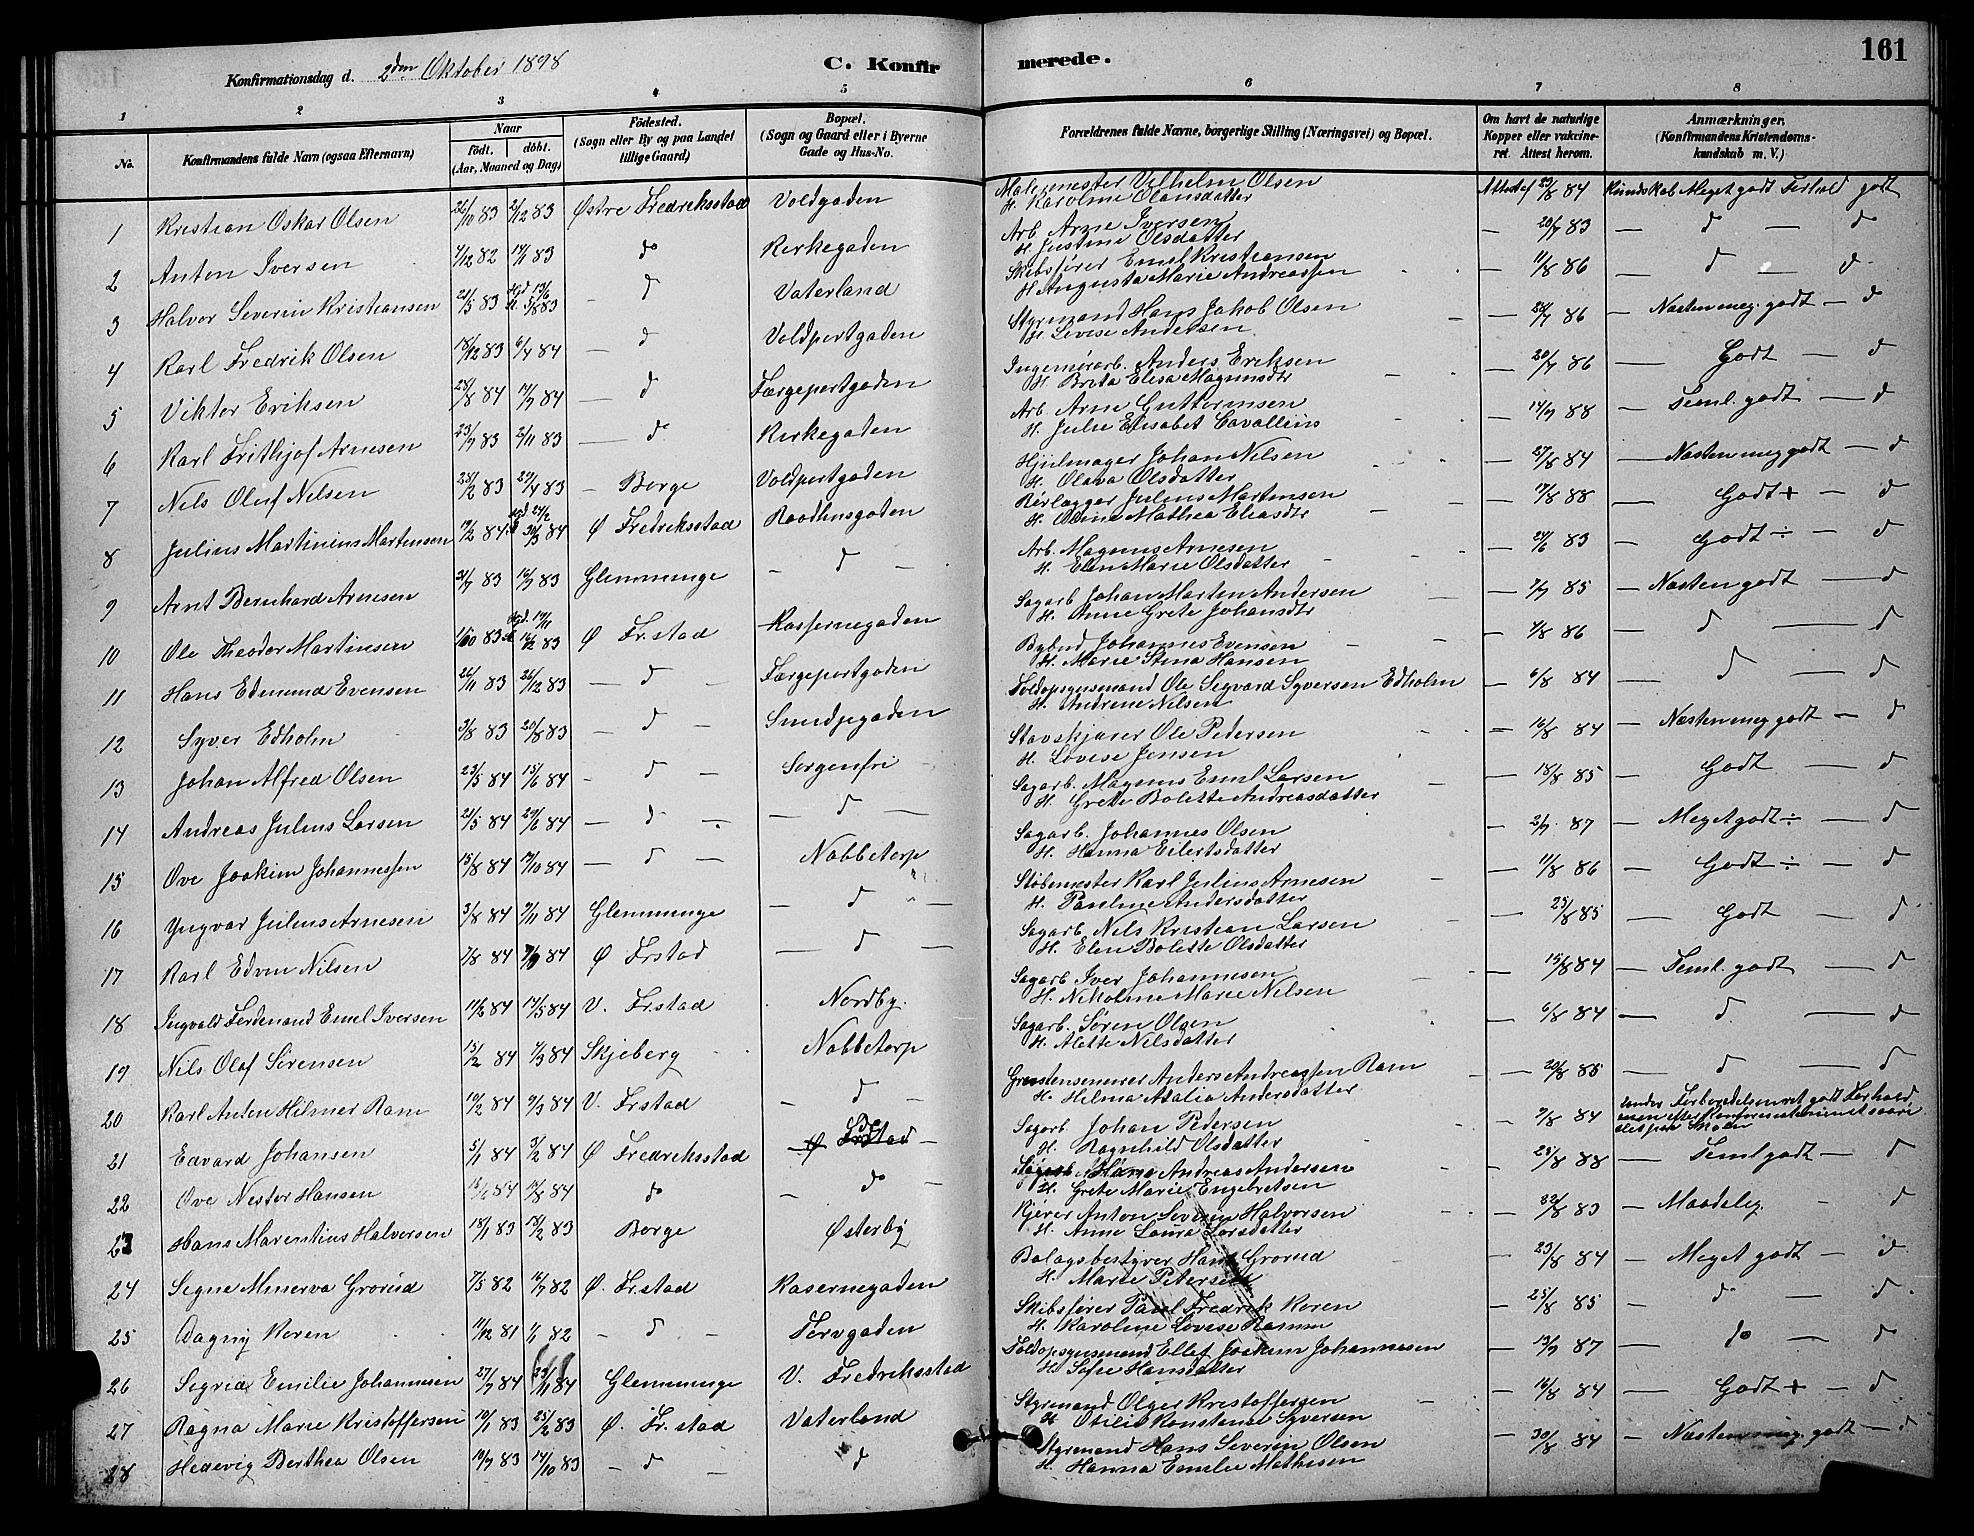 Konfirmationsdag d. 2den Oktober 1898 C. Konfirmerede. 161
1 2 3 4 5 6 7 8
No. Konfirmandens fulde Navn (ogsaa Efternavn) Naar födt. döbt. (Aar, Maaned og Dag) Födested. (Sogn eller By og paa Landet tillige Gaard) Bopæl. (Sogn og Gaard eller i Byerne Gade og Hus-No. Forældrenes fulde Navne, borgerlige Stilling (Næringsvei) og Bopæl. Om havt de naturlige Kopper eller vakcineret. Attest herom. Anmærkninger. (Konfirmandens Kristendomskundskab m. V.)
1 Kristian Oskar Olsen 26/10 83 2/12 83 Østre Fredriksstad Voldgaden Malermester Vilhelm Olsen Attest af 23/8 84 Kundskab Meget godt Forhold godt
H. Karoline Olausdatter
2 Anton Iversen 4/12 82 14/1 83 do Kirkegaden Arb. Arne Iversen — 20/7 83 — d — d
H. Justine Olsdatter
3 Halvor Severin Kristiansen 21/5 83 hjd 13/6 st. 5/8 83 — d Vaterland Skibsfører Emil Kristiansen — 11/8 86 — d — d
H. Augusta Marie Andreassen
4 Karl Fredrik Olsen 18/12 83 6/4 84 — d Voldportgaden Styrmand Hans Jakob Olsen — 28/7 86 — Næsten meg. godt — d
H. Lovise Andersen
5 Viktor Eriksen 28/8 84 14/9 84 — d Færgeportgaden Ingeniørarb. Anders Eriksen — 20/7 86 — Godt — d
H. Brita Elisa Magnusdtr
6 Karl Frithjof Arnesen 23/7 83 2/11 83 — d Kirkegaden Arb. Arne Guttormsen — 14/9 88 — Teml. godt — d
H. Julie Elisabet Cavallius
7 Nils Oluf Nilsen 25/2 83 29/4 83 — Borge Voldportgaden Hjulmager Johan Nilsen — 27/8 84 — Næsten meg godt — d
H. Olava Olsdatter
8 Julius Martinius Martensen 19/2 84 hjd 24/2 st 30/3 84 Ø Fredriksstad Raadhusgaden Rørlægger Julius Martensen — 17/8 88 — Godt + — d
H. Oline Mathea Eliasdtr
9 Arnt Bernhard Arnesen 21/7 83 16/9 83 Glemminge — d — Arb. Magnus Arnesen — 24/6 83 — Godt ÷ — d
H. Elen Marie Olsdatter
10 Ole Theodor Martinsen 1/10 83 hjd. 19/11 st. 16/12 83 Ø Fr.stad Kassernegaden Sagarb Johan Marten Andersen — 7/9 85 — Næsten godt — d
H. Anne Grete Johansdtr
11 Hans Edmund Evensen 26/11 83 26/12 83 — d — Færgeportgaden Bybud Johannes Evensen — 4/8 86 — d — d
H. Marie Stina Hansen
12 Syver Edholm 3/8 83 20/8 83 — d — Smedjegaden Toldopsynsmand Ole Segvard Syversen Edholm — 6/8 84 — d — d
H. Andrine Nilsen
13 Johan Alfred Olsen 23/5 84 15/6 84 — d — Sorgenfri Stavskjærer Ole Pedersen — 16/8 84 — Næsten meg godt — d
H. Lovise Jensen
14 Andreas Julius Larsen 21/5 84 29/6 84 — d — — d — Sagarb. Magnus Emil Larsen — 18/8 85 — Godt — d
H. Grete Bolette Andreasdatter
15 Ove Joakim Johannessen 15/8 84 19/10 84 — d — Nabbetorp Sagarb. Johannes Olsen — 2/7 87 — Meget godt ÷ — d
H. Hanna Eilertsdatter
16 Yngvar Julius Arnesen 3/8 84 9/11 84 Glemminge — d — Støbemester Karl Julius Arnesen — 11/8 86 — Godt ÷ — d
H. Pauline Andersdatter
17 Karl Edvin Nilsen 7/8 84 7/9 84 Ø Frstad — d — Sagarb Nils Kristian Larsen — 23/8 85 — Godt — d
H. Elen Bolette Olsdatter
18 Ingvald Ferdinand Emil Iversen 11/2 84 17/5 84 V. Fr.stad Nordby. Sagarb Iver Johannesen — 15/8 84 — Teml. godt — d
H. Nikoline Marie Nilsen
19 Nils Olaf Sørensen 15/2 84 4/3 84 Skjeberg Nabbetorp Sagarb. Søren Olsen — 6/8 84 — d. — d
H. Alette Nilsdatter
20 Karl Anton Hilmer Ram 10/2 84 9/3 84 V. Frstad — d — Anders Andreassen Ram — 20/8 85 — d — d
H. Helma Atalia Andersdatter
21 Edvard Johansen 5/1 84 3/2 84 Ø Fredriksstad Sagarb Johan Pedersen — 9/8 84
H. Ragnhild Olsdatter
22 Ove Nestor Hansen 84 84 do — do — Andreas Andersen — 25/8 88 — Teml godt — d
H. Grete Marie Engebretsen
23 Hans Marentius Halvorsen 18/1 83 18/2 83 Borge Østerby Kjører Anton Severin Halvorsen — 22/8 83 — Maadelig — d
H. Anne Laura Larsdatter
24 Segne Minerva Grorud 7/5 82 16/7 82 Ø. Fr.stad Kasernegaden Bolagsbestyrer Hans Grorud — 23/8 84 — Meget godt — d
H. Marie Petersen
25 Dagny Koren 11/12 81 1/1 82 — d — Torvgaden Skibsfører Paul Fredrik Koren — 25/8 85 — do — d
H. Karoline Lovise Ramm
26 Segrid Emilie Johannesen 27/7 84 23/11 84 Glemminge V. Fredriksstad Toldopsynsmand Ellef Joakim Johannesen — 13/9 87 — do — d
H. Sofie Hansdatter
27 Ragna Marie Kristoffersen 10/1 83 25/2 83 Ø. Fr.stad Vaterland Styrmand Olger Kristoffersen — 16/8 84 — Godt + — d
H. Otilie Konstanse Syversen
28 Hedevig Berthea Olsen 19/9 83 14/10 83 — d — d Styrmand Hans Severin Olsen — 30/8 84 — Næsten meg. godt — d
H. Hanna Emilie Mathisen